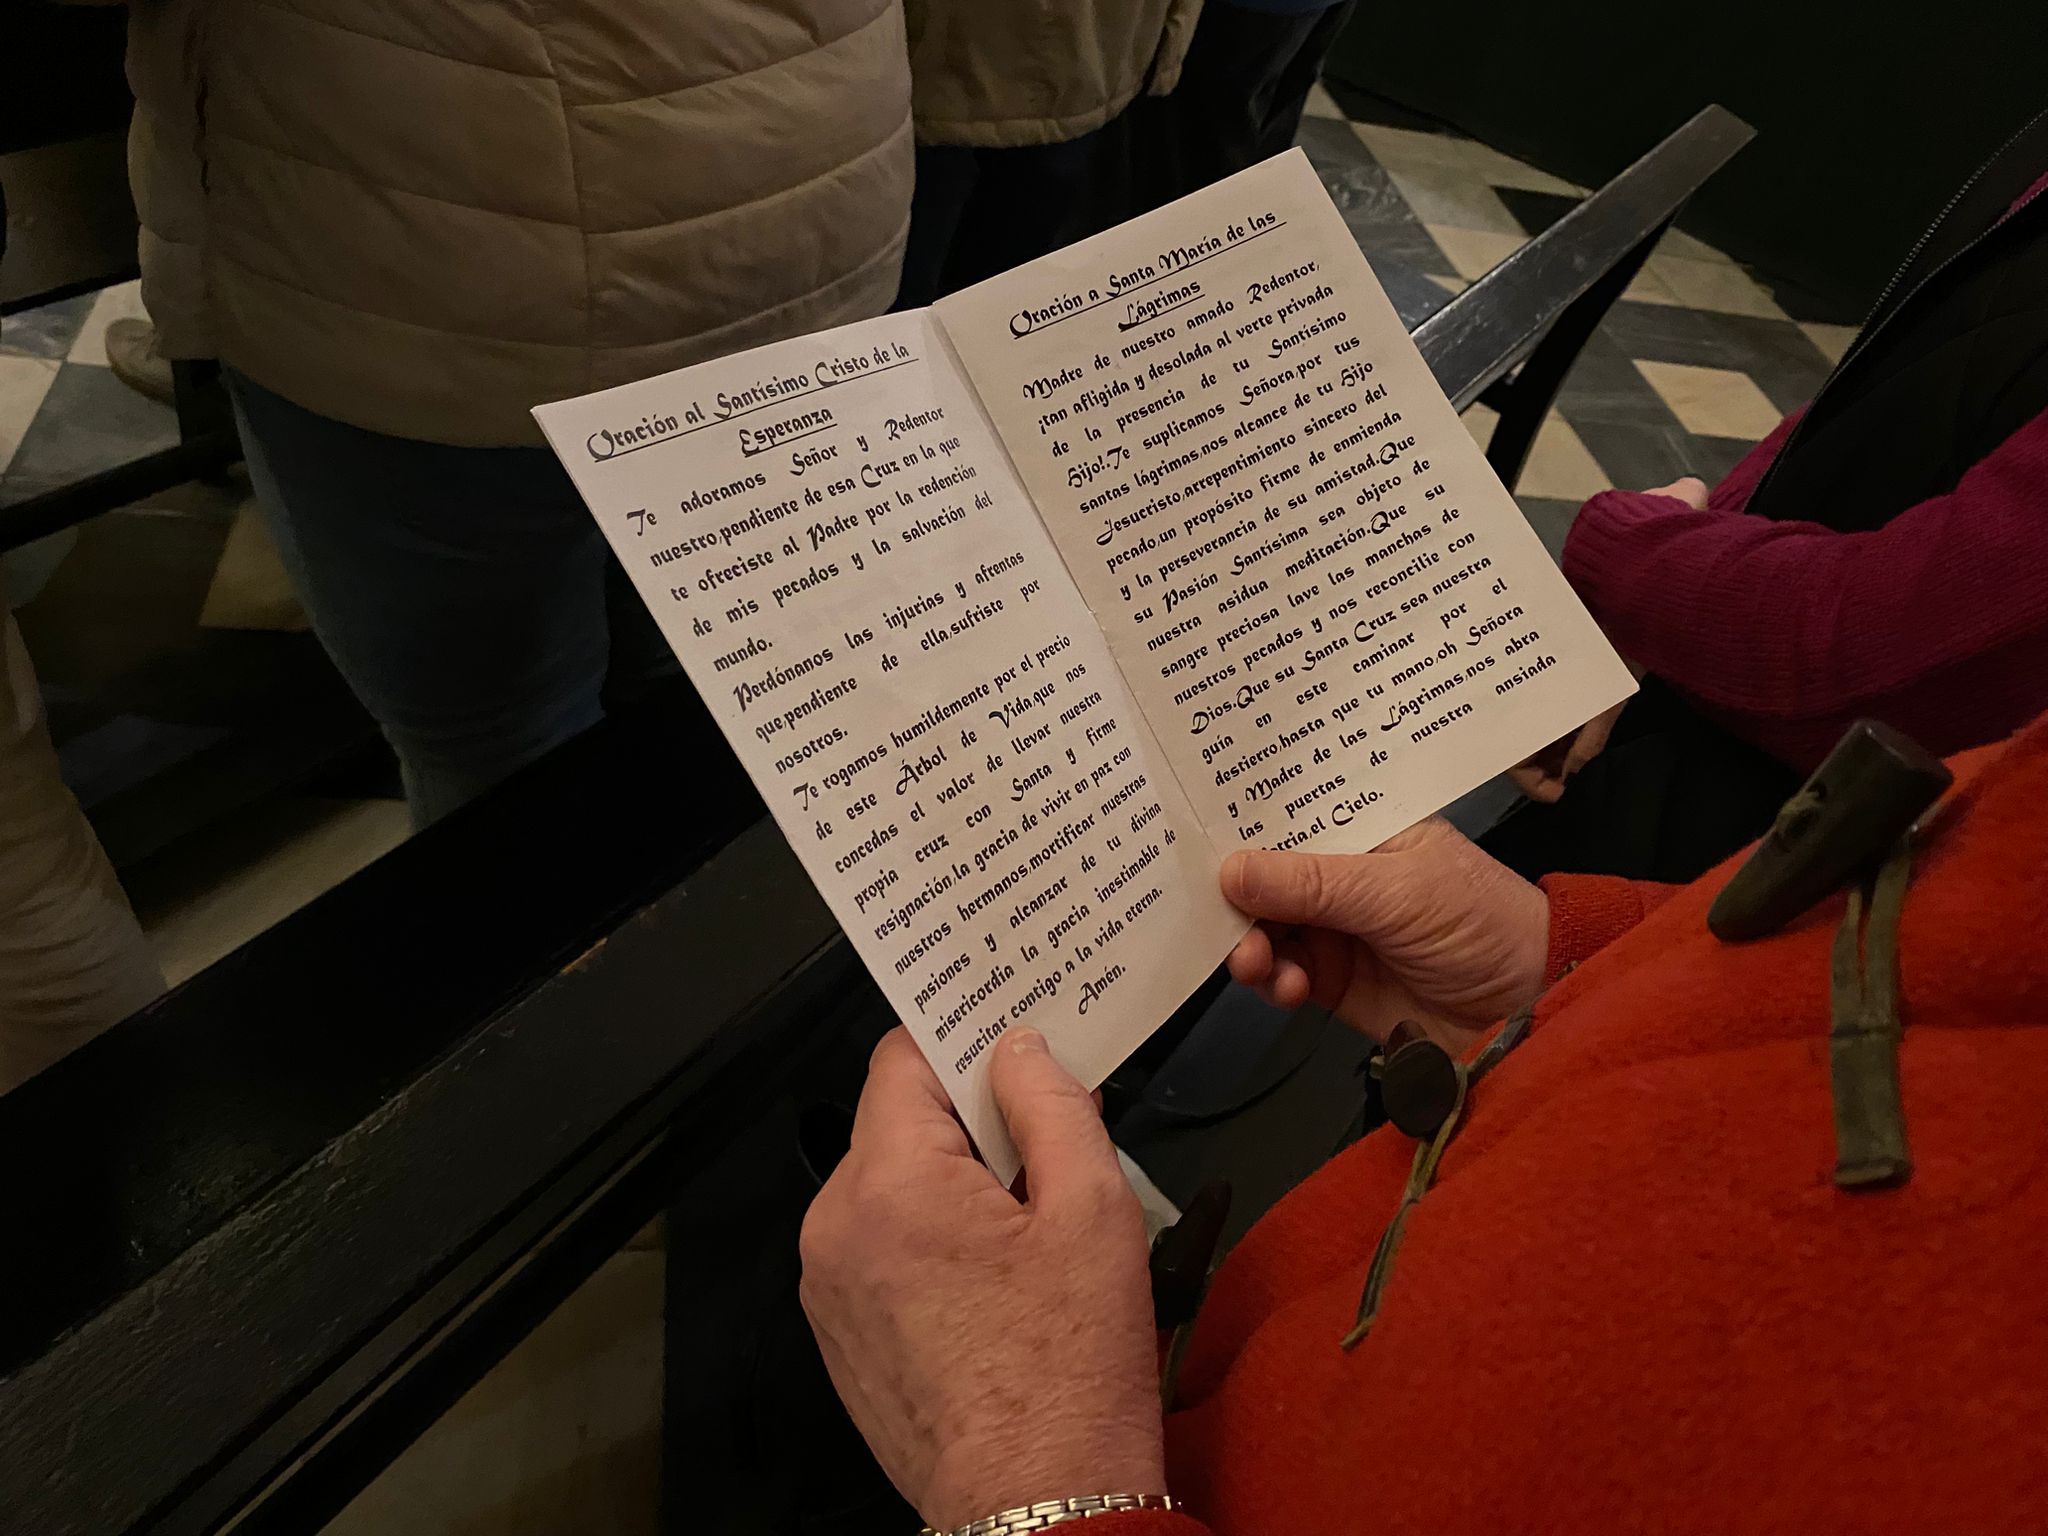 Oración al Santísimo Cristo de la
Esperanza
Te adoramos Señor y Redentor
nuestro,pendiente de esa Cruz en la que
te ofreciste al Padre por la redención
de mis pecados y la salvación del
mundo.
Perdónanos las injurias y afrentas
que,pendiente de ella,sufriste por
nosotros.
Te rogamos humildemente por el precio
de este Árbol de Vida,que nos
concedas el valor de llevar nuestra
propia cruz con Santa y firme
resignación,la gracia de vivir en paz con
nuestros hermanos,mortificar nuestras
pasiones y alcanzar de tu divina
misericordia la gracia inestimable de
resucitar contigo a la vida eterna.
Amén.
Oración a Santa María de las
Lágrimas
Madre de nuestro amado Redentor,
¡tan afligida y desolada al verte privada
de la presencia de tu Santísimo
Hijo!.Te suplicamos Señora,por tus
santas lágrimas,nos alcance de tu Hijo
Jesucristo,arrepentimiento sincero del
pecado,un propósito firme de enmienda
y la perseverancia de su amistad.Que
su Pasión Santísima sea objeto de
nuestra asidua meditación.Que su
sangre preciosa lave las manchas de
nuestros pecados y nos reconcilie con
Dios.Que su Santa Cruz sea nuestra
guía en este caminar por el
destierro,hasta que tu mano,oh Señora
y Madre de las Lágrimas,nos abra
las puertas de nuestra ansiada
atria,el Cielo.